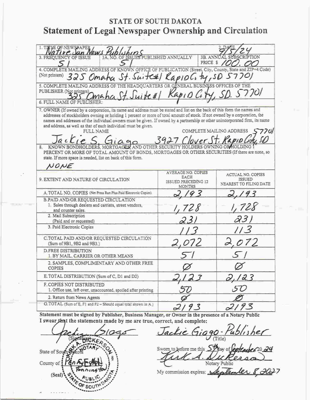 STATE OF SOUTH DAKOTA
Statement of Legal Newspaper Ownership and Circulation
Native Sun News Publishing
9/5/24
3. FREQUENCY OF ISSUE
51
51
PRICE $ 100.00
4. COMPLETE MAILING ADDRESS OF KNOWN OFFICE OF PUBLICATION (Street, City, County, State and ZIP+4 Code)
(Not printer) 325 Omaha St. Suite 1 Rapid City, SD 57701
5. COMPLETE MAILING ADDRESS OF THE HEADQUARTERS OR GENERAL BUSINESS OFFICES OF THE
PUBLISHER
325 Omaha St. Suite 1 Rapid City, SD. 57701
6. FULL NAME OF PUBLISHER:
7. OWNER (If owned by a corporation, its name and address must be stated and list on the back of this form the names and
addresses of stockholders owning or holding 1 percent or more of total amount of stock. If not owned by a corporation, the
names and addresses of the individual owners must be given. If owned by a partnership or other unincorporated firm, its name
and address, as well as that of each individual must be given.
FULL NAME
COMPLETE MAILING ADDRESS 57701
Jackie S. Giago 3927 Clover St. Rapid City, SD
8. KNOWN BONDHOLDERS, MORTGAGEE AND OTHER SECURITY HOLDERS OWNING OR HOLDING 1
PERCENT OR MORE OF TOTAL AMOUNT OF BONDS, MORTGAGES OR OTHER SECURITIES (If there are none, so
state. If more space is needed, list on back of this form.
NONE
9. EXTENT AND NATURE OF CIRCULATION
AVERAGE NO. COPIES
EACH
ISSUED PRECEDING 12
MONTHS
ACTUAL NO. COPIES
ISSUED
NEAREST TO FILING DATE
A. TOTAL NO. COPIES
2,193
2,193
B. PAID AND/OR REQUESTED CIRCULATION
1. Sales through dealers and carriers, street vendors,
and counter sales.
1,728
1,728
2. Mail Subscription
(Paid and or requested)
231
231
3. Paid Electronic Copies
113
113
C. TOTAL PAID AND/OR REQUESTED CIRCULATION
(Sum of 9B1, 9B2 and 9B3.)
2,072
2,072
D. FREE DISTRIBUTION
1. BY MAIL, CARRIER OR OTHER MEANS
51
51
2. SAMPLES, COMPLIMENTARY AND OTHER FREE
COPIES
Ø
Ø
E. TOTAL DISTRIBUTION (Sum of C, D1 and D2)
2,123
2,123
F. COPIES NOT DISTRIBUTED
1. Office use, left over, unaccounted, spoiled after printing
50
50
2. Return from News Agents
Ø
Ø
G. TOTAL (Sum of E, F1 and F2 – Should equal total shown in A.)
2193
2193
Statement must be signed by Publisher, Business Manager, or Owner in the presence of a Notary Public
I swear that the statements made by me are true, correct, and complete:
Jackie Giago
Jackie Giago - Publisher
(Title)
State of South
Sworn to before me this 5th day September 20 24
Kirk A. Dickerson
County of Pennington
Notary Public
(Seal)
My commission expires: September 8, 2027